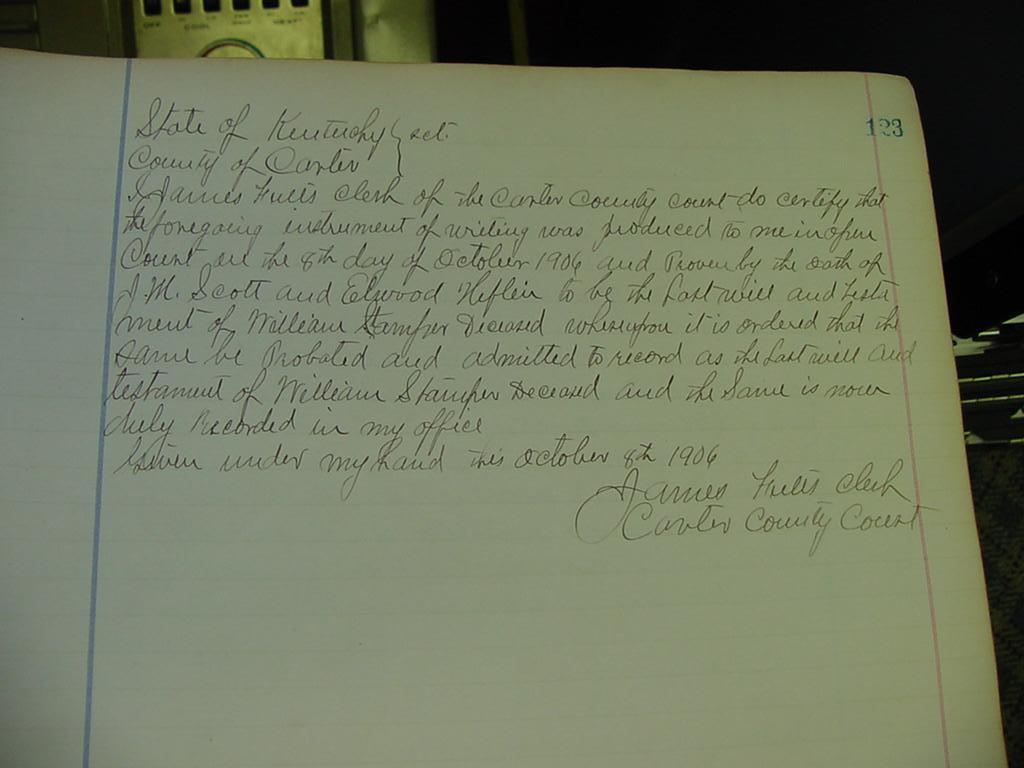 OFF COOL
123
State of Kentucky } sct.
County of Carter
I James Fults clerk of the Carter County court do certify that
the foregoing instrument of writing was produced to me in open
Court on the 8th day of October 1906 and Proven by the oath of
J. M. Scott and Elwood Heflin to be the Last will and testa
ment of William Stamper Deceased whereupon it is ordered that the
same be Probated and admitted to record as the Last will and
testament of William Stamper Deceased and the Same is now
duly Recorded in my office
Given under my hand this October 8th 1906
James Fults clerk
Carter County Court